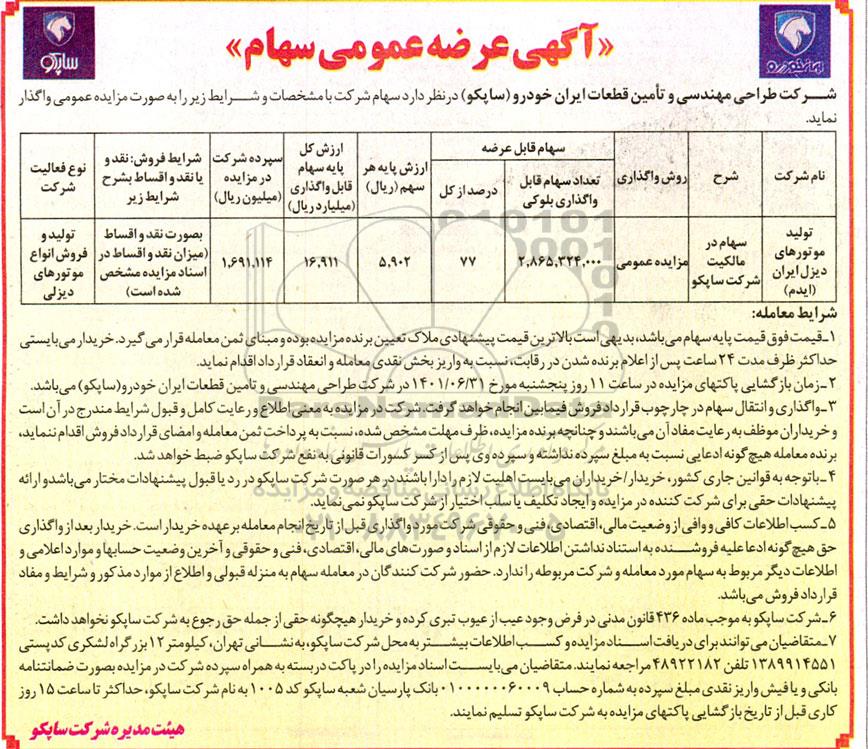 «آگهی عرضه عمومی سهام»
ایران خودرو
ساپکو
شرکت طراحی مهندسی و تأمین قطعات ایران خودرو (ساپکو) در نظر دارد سهام شرکت با مشخصات و شرایط زیر را به صورت مزایده عمومی واگذار
نماید.
نام شرکت
شرح
روش واگذاری
سهام قابل عرضه
تعداد سهام قابل واگذاری بلوکی
درصد از کل
ارزش پایه هر سهم (ریال)
ارزش کل پایه سهام قابل واگذاری (میلیارد ریال)
سپرده شرکت در مزایده (میلیون ریال)
شرایط فروش: نقد و یا نقد و اقساط بشرح شرایط زیر
نوع فعالیت شرکت
تولید موتورهای دیزل ایران (ایدم)
سهام در مالکیت شرکت ساپکو
مزایده عمومی
۲,۸۶۵,۳۲۴,۰۰۰
۷۷
۵,۹۰۲
۱۶,۹۱۱
۱,۶۹۱,۱۱۴
بصورت نقد و اقساط (میزان نقد و اقساط در اسناد مزایده مشخص شده است)
تولید و فروش انواع موتورهای دیزلی
شرایط معامله:
۱ـ قیمت فوق قیمت پایه سهام می‌باشد، بدیهی است بالاترین قیمت پیشنهادی ملاک تعیین برنده مزایده بوده و مبنای ثمن معامله قرار می‌گیرد. خریدار می‌بایستی
حداکثر ظرف مدت ۲۴ ساعت پس از اعلام برنده شدن در رقابت، نسبت به واریز بخش نقدی معامله و انعقاد قرارداد اقدام نماید.
۲ـ زمان بازگشایی پاکتهای مزایده در ساعت ۱۱ روز پنجشنبه مورخ ۱۴۰۱/۰۶/۳۱ در شرکت طراحی مهندسی و تامین قطعات ایران خودرو(ساپکو) می‌باشد.
۳ـ واگذاری و انتقال سهام در چارچوب قرارداد فروش فیمابین انجام خواهد گرفت. شرکت در مزایده به معنی اطلاع و رعایت کامل و قبول شرایط مندرج در آن است
و خریداران موظف به رعایت مفاد آن می‌باشند و چنانچه برنده مزایده، ظرف مهلت مشخص شده، نسبت به پرداخت ثمن معامله و امضای قرارداد فروش اقدام ننماید،
برنده معامله هیچ‌گونه ادعایی نسبت به مبلغ سپرده نداشته و سپرده وی پس از کسر کسورات قانونی به نفع شرکت ساپکو ضبط خواهد شد.
۴ـ باتوجه به قوانین جاری کشور، خریدار/خریداران می‌بایست اهلیت لازم را دارا باشند در هر صورت شرکت ساپکو در رد یا قبول پیشنهادات مختار می‌باشد و ارائه
پیشنهادات حقی برای شرکت کننده در مزایده و ایجاد تکلیف یا سلب اختیار از شرکت ساپکو نمی نماید.
۵ـ کسب اطلاعات کافی و وافی از وضعیت مالی، اقتصادی، فنی و حقوقی شرکت مورد واگذاری قبل از تاریخ انجام معامله بر عهده خریدار است. خریدار بعد از واگذاری
حق هیچ گونه ادعا علیه فروشنده به استناد نداشتن اطلاعات لازم از اسناد و صورت‌های مالی، اقتصادی، فنی و حقوقی و آخرین وضعیت حسابها و موارد اعلامی و
اطلاعات دیگر مربوط به سهام مورد معامله و شرکت مربوطه را ندارد. حضور شرکت کنندگان در معامله سهام به منزله قبولی و اطلاع از موارد مذکور و شرایط و مفاد
قرارداد فروش می‌باشد.
۶ـ شرکت ساپکو به موجب ماده ۴۳۶ قانون مدنی در فرض وجود عیب از عیوب تبری کرده و خریدار هیچگونه حقی از جمله حق رجوع به شرکت ساپکو نخواهد داشت.
۷ـ متقاضیان می‌توانند برای دریافت اسناد مزایده و کسب اطلاعات بیشتر به محل شرکت ساپکو، به نشانی تهران، کیلومتر ۱۲ بزرگراه لشکری کدپستی
۱۳۸۹۹۱۴۵۵۱ تلفن ۴۸۹۲۲۱۸۲ مراجعه نمایند. متقاضیان می‌بایست اسناد مزایده را در پاکت دربسته به همراه سپرده شرکت در مزایده بصورت ضمانتنامه
بانکی و یا فیش واریز نقدی مبلغ سپرده به شماره حساب ۰۱۰۰۰۰۰۰۶۰۰۰۹ بانک پارسیان شعبه ساپکو کد ۱۰۰۵ به نام شرکت ساپکو، حداکثر تا ساعت ۱۵ روز
کاری قبل از تاریخ بازگشایی پاکتهای مزایده به شرکت ساپکو تسلیم نمایند.
هیئت مدیره شرکت ساپکو